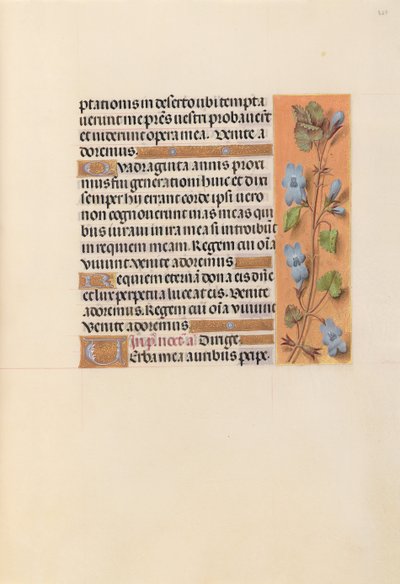 ptationis in deserto ubi tempta
verunt me pr̃es vestri probaver̃t
et viderunt opera mea. Venite a
doremus.
Quadraginta annis proxi
mus fui generationi huic et dixi
semper hy errant corde ipsi vero
non cognoverunt vias meas qui
bus iuravi in ira mea si introibũt
in requiem meam. Regem cui oĩa
vivunt venite adoremus.
Requiem eternã dona eis dñe
et lux perpetua luceat eis. Venite
adoremus. Regem cui oĩa vivunt
Venite adoremus.
Dirige.
Verba mea auribus percipe.